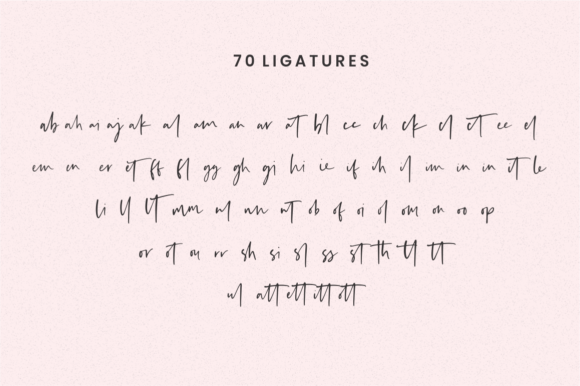 70 LIGATURES
ab ah ai aj ak al am an ar at bl cc ch ck cl ct ee el
em en er et ff fl gg gh gi hi ie if ih il im in ir it le
li ll lt mm nl nn nt ob of oi ol om on oo op
or ot ou rr sh si sl ss st th tl tt
ul att ett itt ott